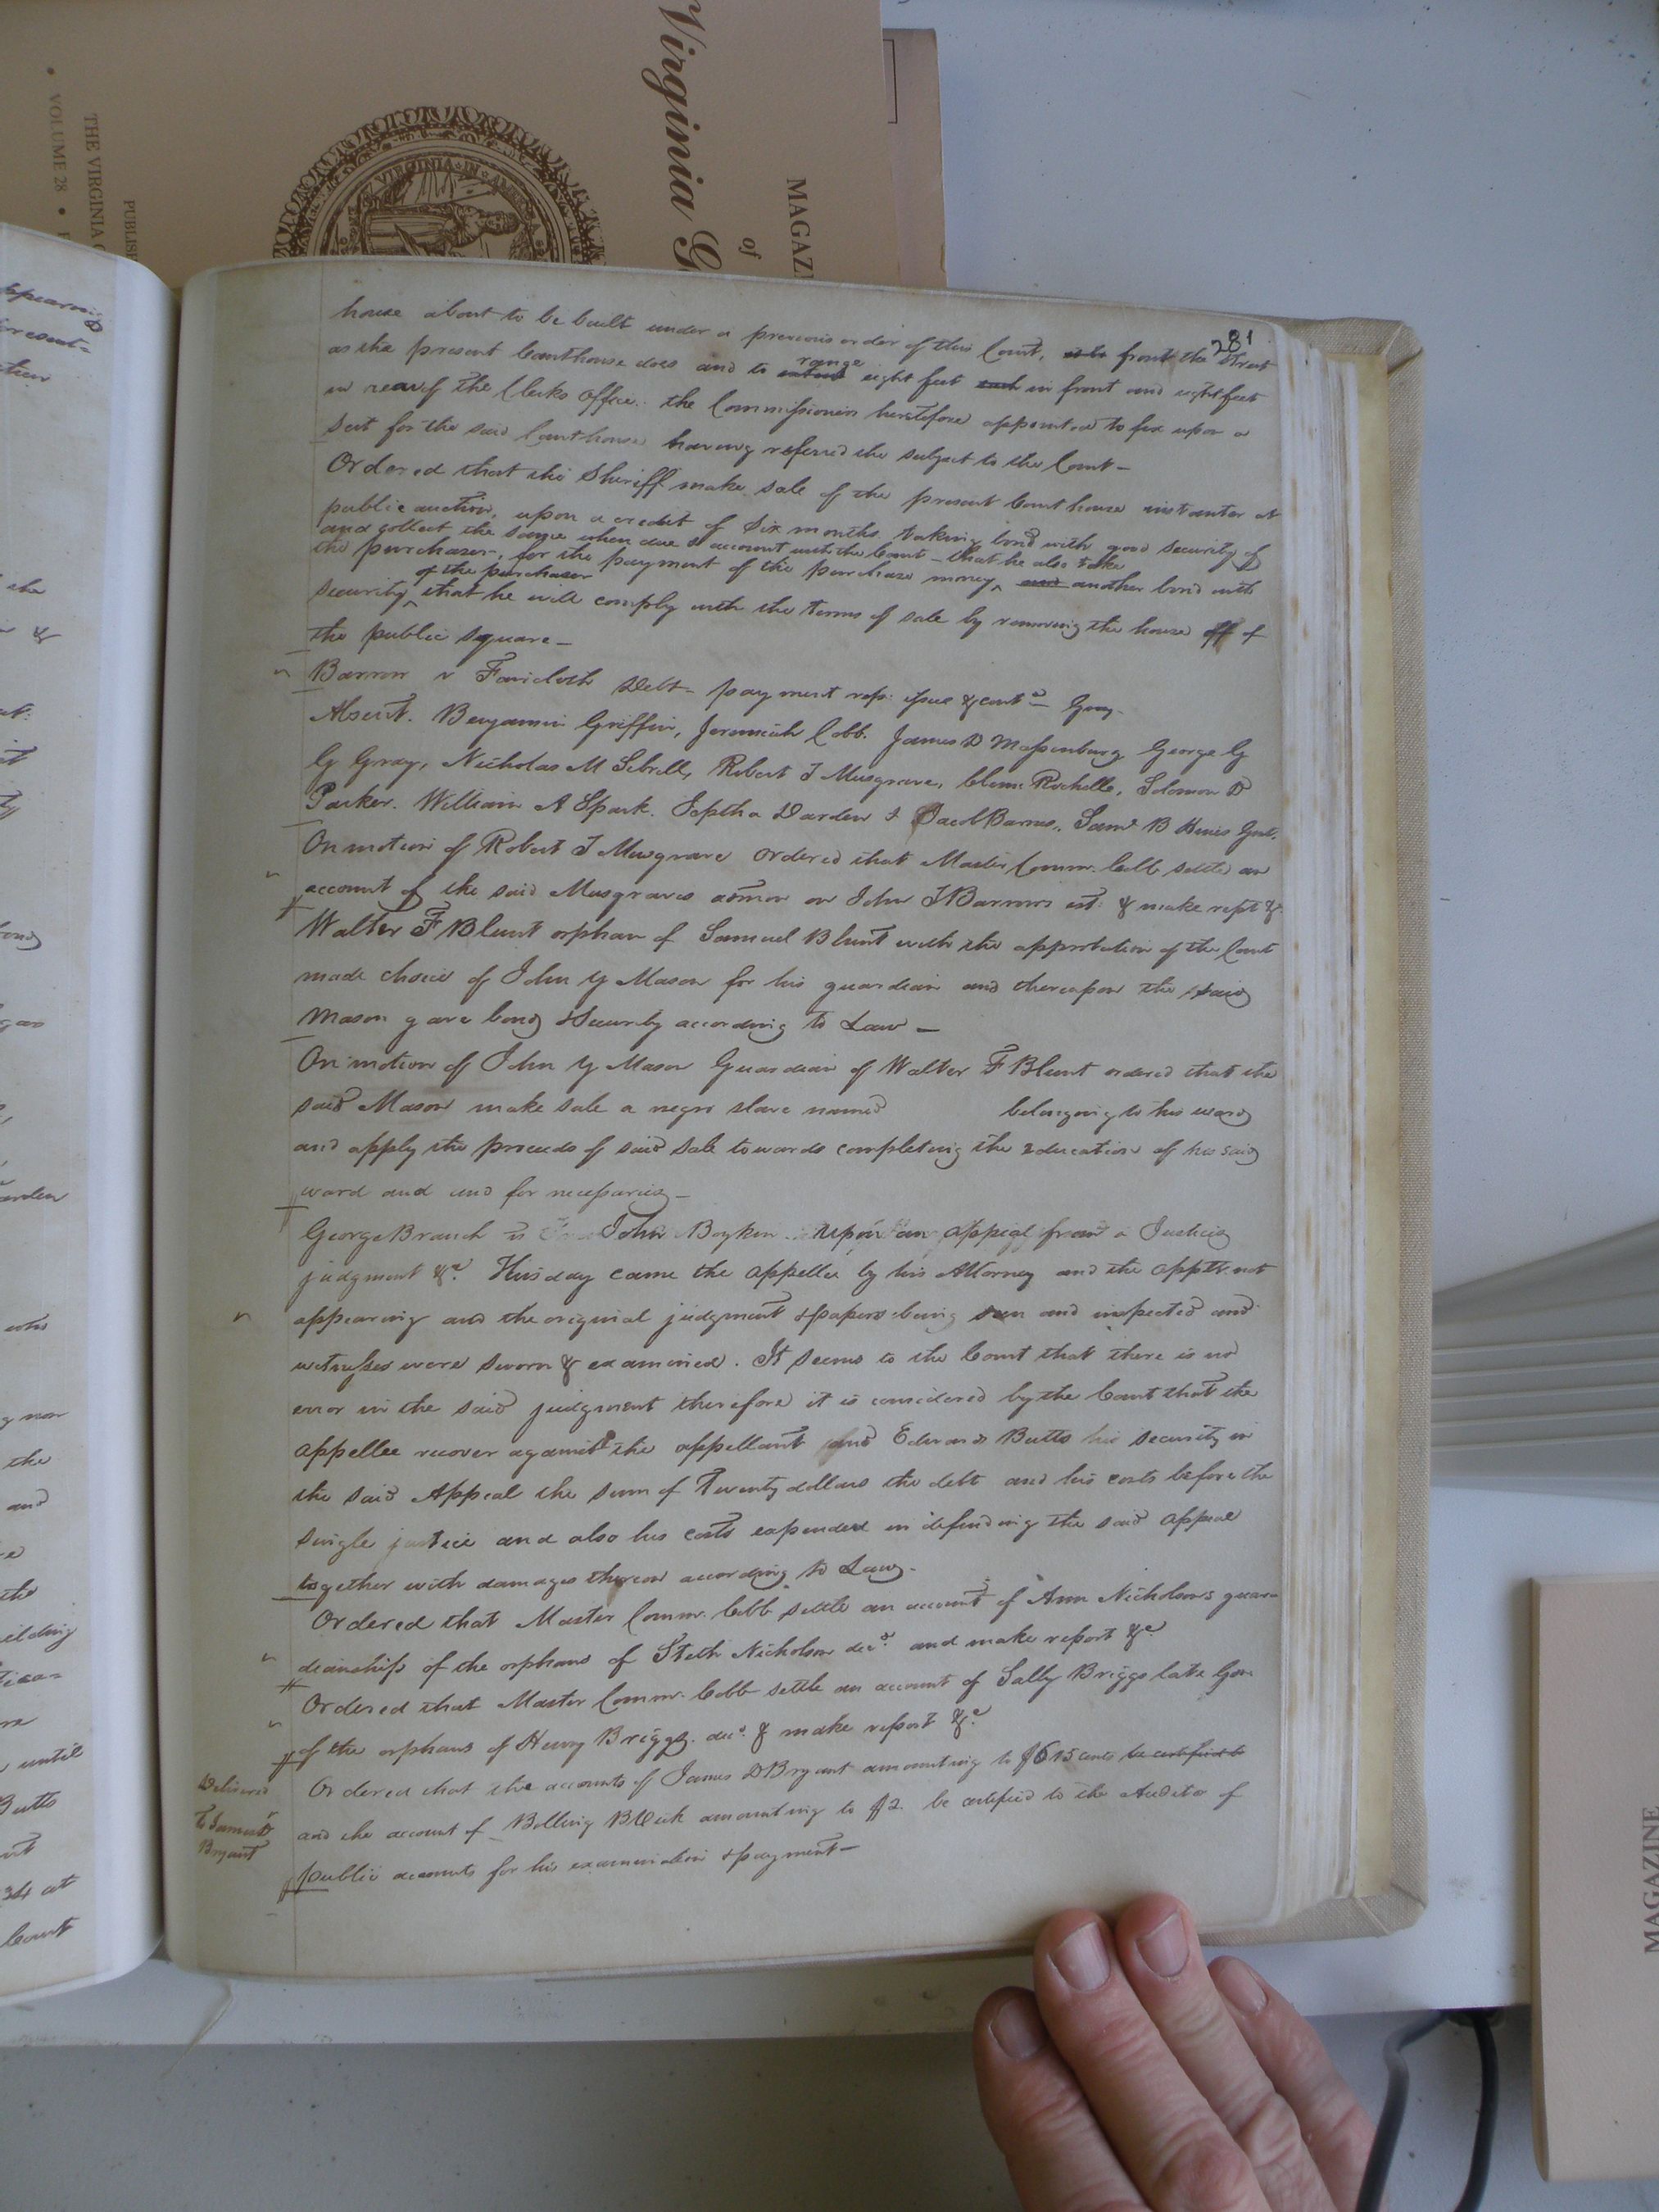 Virginia
MAGAZI
of
VIRGINIA IN
THE VIRGINIA
VOLUME 28
PUBLISH
281
house about to be built under a previous order of this Court, front the Street
as the present Courthouse does and to range eight feet in front and eight feet
in rear of the Clerks office. the Commissioners heretofore appointed to fix upon a
seat for the said Courthouse having referred the subject to the Court—
Ordered that the Sheriff make sale of the present Court house instanter at
public auction, upon a credit of Six months, taking bond with good security of
and collect the same when due & account with the Court – that he also take
the purchaser, for the payment of the purchase money, and another bond with
of the purchaser
security that he will comply with the terms of sale by removing the house off of
the public square—
Barrow v Faircloth Debt – payment rep: issue & contd—
Absent. Benjamin Griffin, Jeremiah Cobb. James D Massenburg George G
G Gray, Nicholas M Sebrell, Robert T Musgrave, Clem: Rochelle, Solomon D
Parker. William A Spark. Jeptha Darden & Jacob Barnes, Saml B Hines Gent.
On motion of Robert T Musgrave ordered that Master Commr. Cobb settle an
account of the said Musgraves admon on John T Barrows est: & make rept &
Walter F Blunt orphan of Samuel Blunt with the approbation of the Court
made choice of John Y Mason for his guardian and thereupon the said
Mason gave bond & Security according to Law—
On motion of John Y Mason Guardian of Walter F Blunt ordered that the
said Mason make sale a negro slave named belonging to his ward
and apply the proceeds of said sale towards completing the education of his said
ward and and for necessaries—
George Branch vs John Boykin upon an appeal from a Justices
judgment &c. This day came the appellee by his Attorney and the applt. not
appearing and the original judgment & papers being seen and inspected and
witnesses were sworn & examined. It seems to the Court that there is no
error in the said judgment therefore it is considered by the Court that the
appellee recover against the appellant and Edward Butts his security in
the said Appeal the sum of Twenty dollars the debt and his costs before the
single justice and also his costs expended in defending the said appeal
together with damages thereon according to Law.
Ordered that Master Commr. Cobb settle an account of Ann Nicholsons guar=
dianship of the orphans of Steth Nicholson decd. and make report &c.
Ordered that Master Commr. Cobb settle an account of Sally Briggs late Gdn.
of the orphans of Henry Briggs. decd. & make report &c.
Ordered that the accounts of James D Bryant amounting to $6 15 cents be certified to
and the account of Bolling B Week amounting to $2. be certified to the Auditor of
public accounts for his examination & payment—
Delivered
To James D
Bryant
MAGAZINE